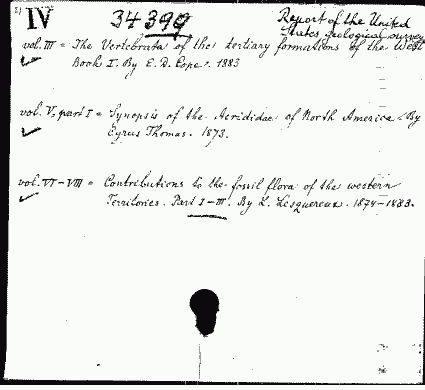 IV 34390 Report of the United
States geological survey
vol. III = The Vertebrata of the tertiary formations of the West
Book I. By E. D. Cope. 1883
vol. V, part I = Synopsis of the Acrididae of North America. By
Cyrus Thomas. 1873.
vol. VI-VIII = Contributions to the fossil flora of the western
Territories. Part I-III. By L. Lesquereux. 1874-1883.